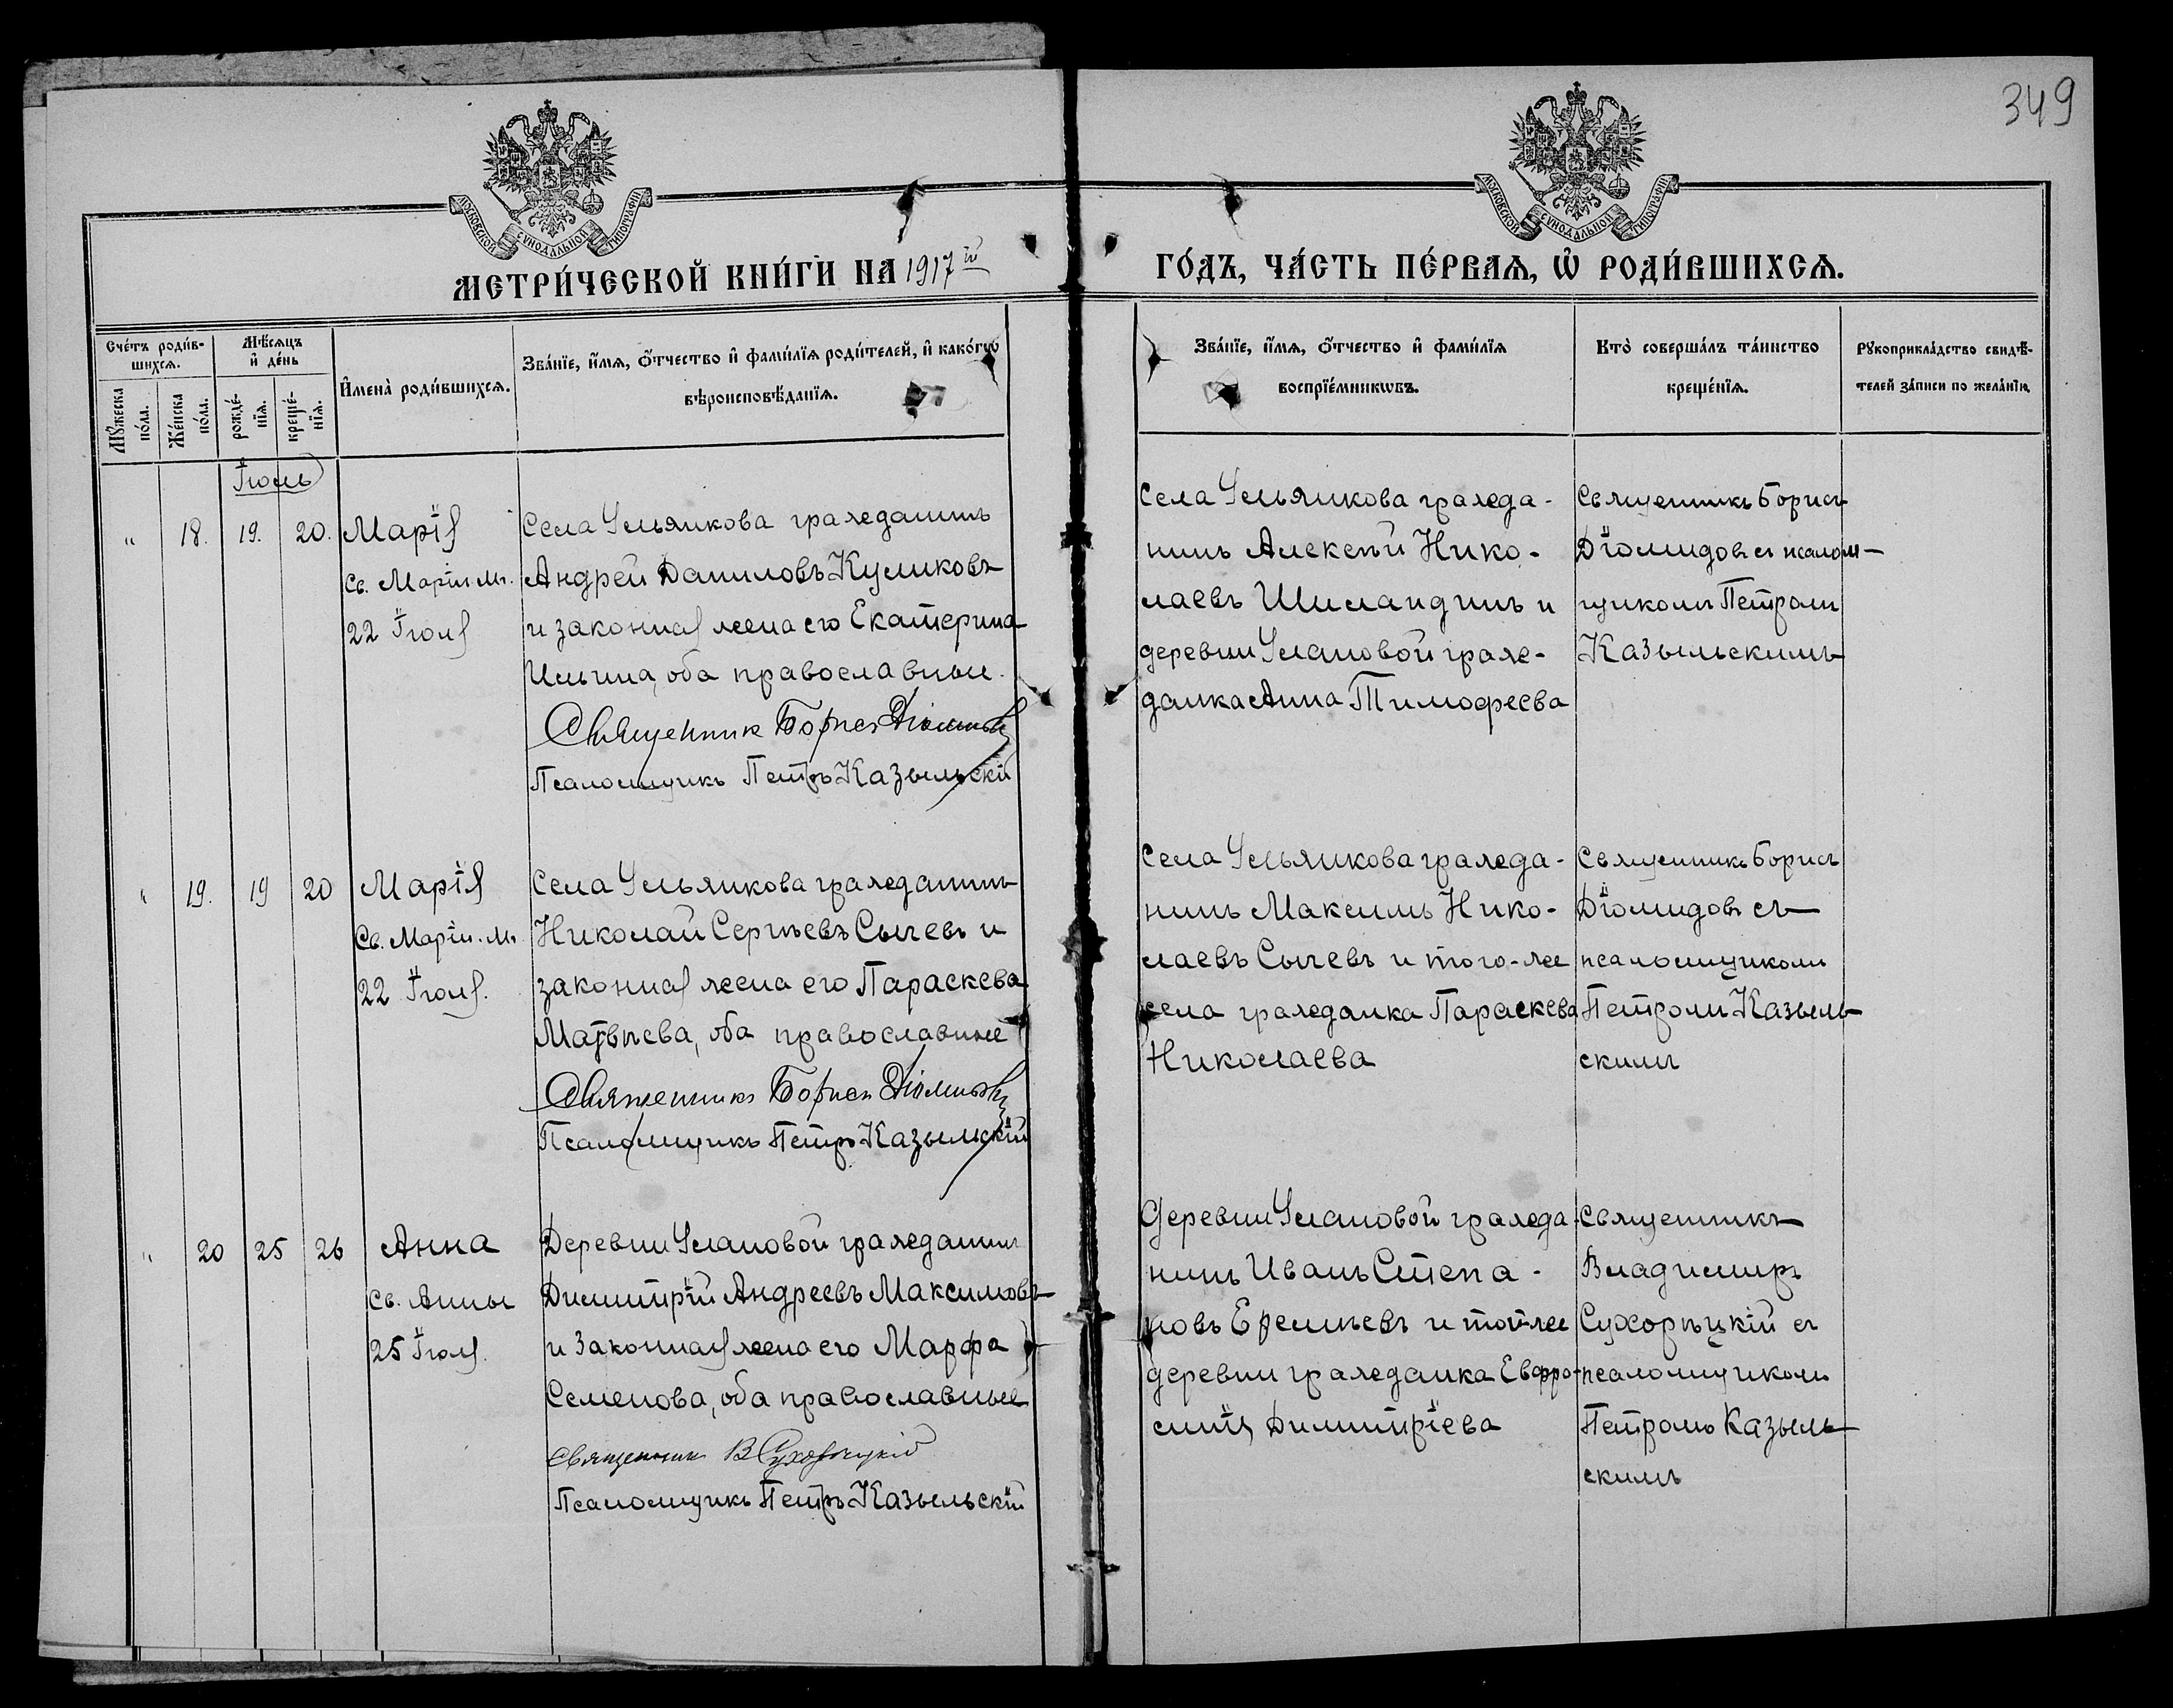 349
МОСКОВСКОЙ СУНОДАЛЬНОЙ ТИПОГРАФІИ
МОСКОВСКОЙ СУНОДАЛЬНОЙ ТИПОГРАФІИ
МЕТРИ́ЧЕСКОЙ КНИ́ГИ НА 1917 й
ГО́ДЪ, ЧА́СТЬ ПЕ́РВАѦ, Ѡ҆ РОДИ́ВШИХСѦ.
Сче́тъ роди́в-
шихсѧ.
Мѣ́сѧцъ
и҆ де́нь
Мꙋ́жеска
по́ла.
Же́нска
по́ла.
рожде́-
нїѧ.
креще́-
нїѧ.
И҆мена̀ роди́вшихсѧ.
Зва́нїе, и҆́мѧ, ѻ҆́тчество и҆ фами́лїѧ роди́телей, и҆ како́гѡ
вѣроисповѣ́данїѧ.
Зва́нїе, и҆́мѧ, ѻ҆́тчество и҆ фами́лїѧ
воспрїе́мникѡвъ.
Кто̀ соверша́лъ та́инство
креще́нїѧ.
Рꙋкоприкла́дство свидѣ́-
телей за́писи по жела́нїю.
Іюль
" 18. 19. 20. Марія
Св. Маріи М.
22 Іюля
Села Ульянкова гражданинъ
Андрей Даниловъ Куликовъ
и законная жена его Екатерина
Ильина, оба православные.
Священник Борисъ Діомидовъ
Псаломщикъ Петръ Казыльскій
Села Ульянкова гражда-
нинъ Алексѣй Нико-
лаевъ Шиландинъ и
деревни Улановой граж-
данка Анна Тимофеева
Священникъ Борисъ
Діомидовъ съ псалом-
щикомъ Петромъ
Казыльскимъ
" 19. 19 20 Марія
Св. Маріи. М.
22 Іюля.
Села Ульянкова гражданинъ
Николай Сергѣевъ Сычевъ и
законная жена его Параскева
Матвѣева, оба православные
Священникъ Борисъ Діомидовъ
Псаломщикъ Петръ Казыльскій
Села Ульянкова гражда-
нинъ Максимъ Нико-
лаевъ Сычевъ и того-же
села гражданка Параскева
Николаева
Священникъ Борисъ
Діомидовъ съ
псаломщикомъ
Петромъ Казыль-
скимъ
" 20 25 26 Анна
Св. Анны
25 Іюля.
Деревни Улановой гражданинъ
Димитрій Андреевъ Максимовъ
и законная жена его Марфа
Семенова, оба православные
Священникъ В Сухорѣцкій
Псаломщикъ Петръ Казыльскій
Деревни Улановой гражда-
нинъ Иванъ Степа-
новъ Еремѣевъ и той-же
деревни гражданка Евфро-
синія Димитріева
Священникъ
Владимиръ
Сухорѣцкій съ
псаломщикомъ
Петромъ Казыль-
скимъ